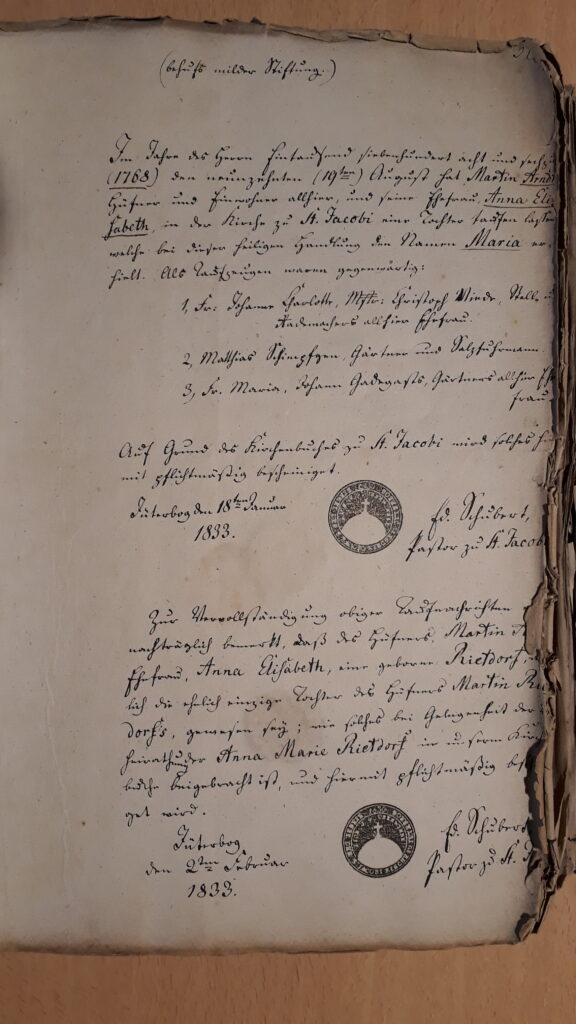 (behufs milder Stiftung.)
Im Jahre des Herrn Eintausend siebenhundert acht und sech
(1768) den neunzehnten (19ten) August hat Martin
Hüfner und Einwohner allhier, und seine Ehefrau, Anna Eli-
sabeth, in der Kirche zu St. Jacobi eine Tochter taufen lassen
welche bei dieser heiligen Handlung den Namen Maria er-
hielt. Als Taufzeugen waren gegenwärtig:
1, Fr: Johanne Charlotte, Mstr: Christoph Stell-
Rademachers allhier Ehefrau.
2, Matthias Gärtner und Salzfuhrmann.
3, Fr. Maria, Johann Gadegasts, Gärtners allhier Ehe
frau.
Auf Grund des Kirchenbuches zu St. Jacobi wird solches hier
mit pflichtmäßig bescheiniget.
Jüterbog den 18ten Januar
1833.
Ed. Schubert,
Pastor zu St. Jacobi
Zur Vervollständigung obiger Taufnachrichten
nachträglich bemerkt, daß des Hüfners, Martin
Ehefrau, Anna Elisabeth, eine geborne Rietdorf,
lich die ehelich einzige Tochter des Hüfners Martin Riet-
dorfs, gewesen sey; wie solches bei Gelegenheit der
heirathung der Anna Marie Rietdorf in unserm Kirchen
buche beigebracht ist, und hiermit pflichtmäßig
get wird.
Jüterbog,
den 2ten Februar
1833.
Ed. Schubert
Pastor zu St.